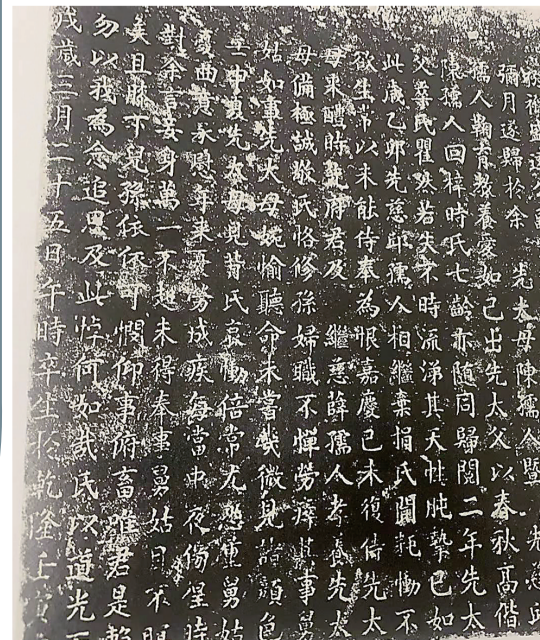 彌月遂歸於余 先太母陳孺人暨 先慈邱
孺人鞠育教養愛如己出先太父以春秋高偕
陳孺人回梓時氏七齡亦隨同歸閱二年先太
父棄氏瞿然若失 時流涕其天性肫摯已如
此歲乙卯先慈邱孺人相繼棄捐氏聞耗慟不
欲生常以未能侍奉為恨嘉慶己未復侍先太
母來醴時先府君及 繼慈薛孺人孝養先太
母備極誠敬氏恪修孫婦職不憚勞瘁其事舅
姑如事先大母婉愉聽命未嘗幾微見諸顏色
壬申夏先太母見背氏哀慟倍常尤 重舅姑
憂曲意承慰年來憂勞成疾每當中夜 時
對余言妾身萬一不起未得奉事舅姑目不瞑
矣且膝下兒孫依依可憫仰事俯畜唯君是賴
勿以我為念追思及此悼何如哉氏以道光
戌歲三月二十五日午時卒生於乾隆壬寅